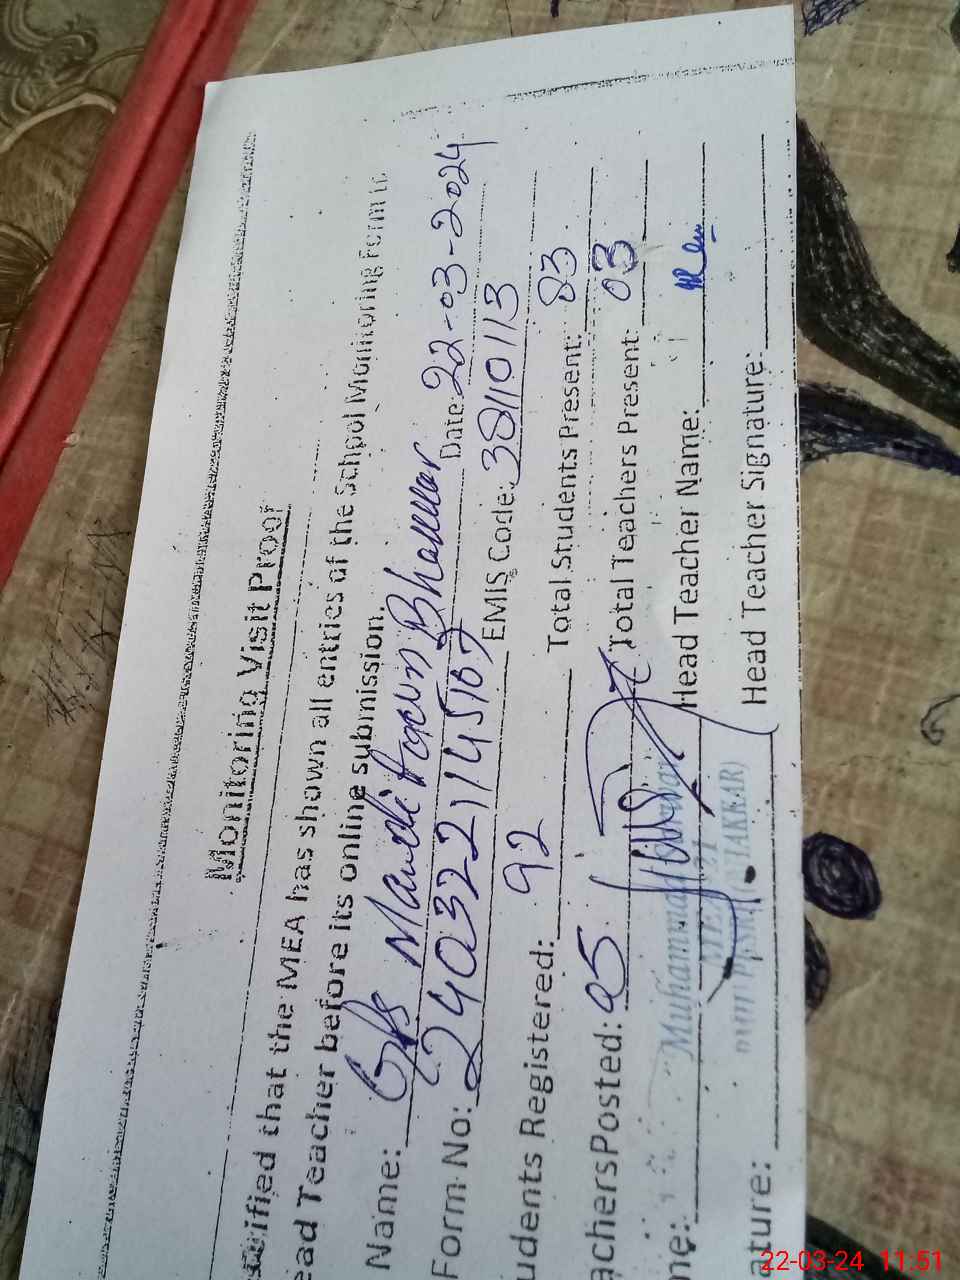 Monitoring Visit Proof
rified that the MEA has shown all entries of the School Monitoring Form to
ead Teacher before its online submission.
Name: GPS Mandi town Bhawar Date: 22-03-2024
Form No: 2403221145167 EMIS Code: 38110113
udents Registered: 92 Total Students Present: 83
achers Posted: 05 Total Teachers Present: 03
me: Muhammad Head Teacher Name:
MEA
ature: Head Teacher Signature:
22-03-24 11:51